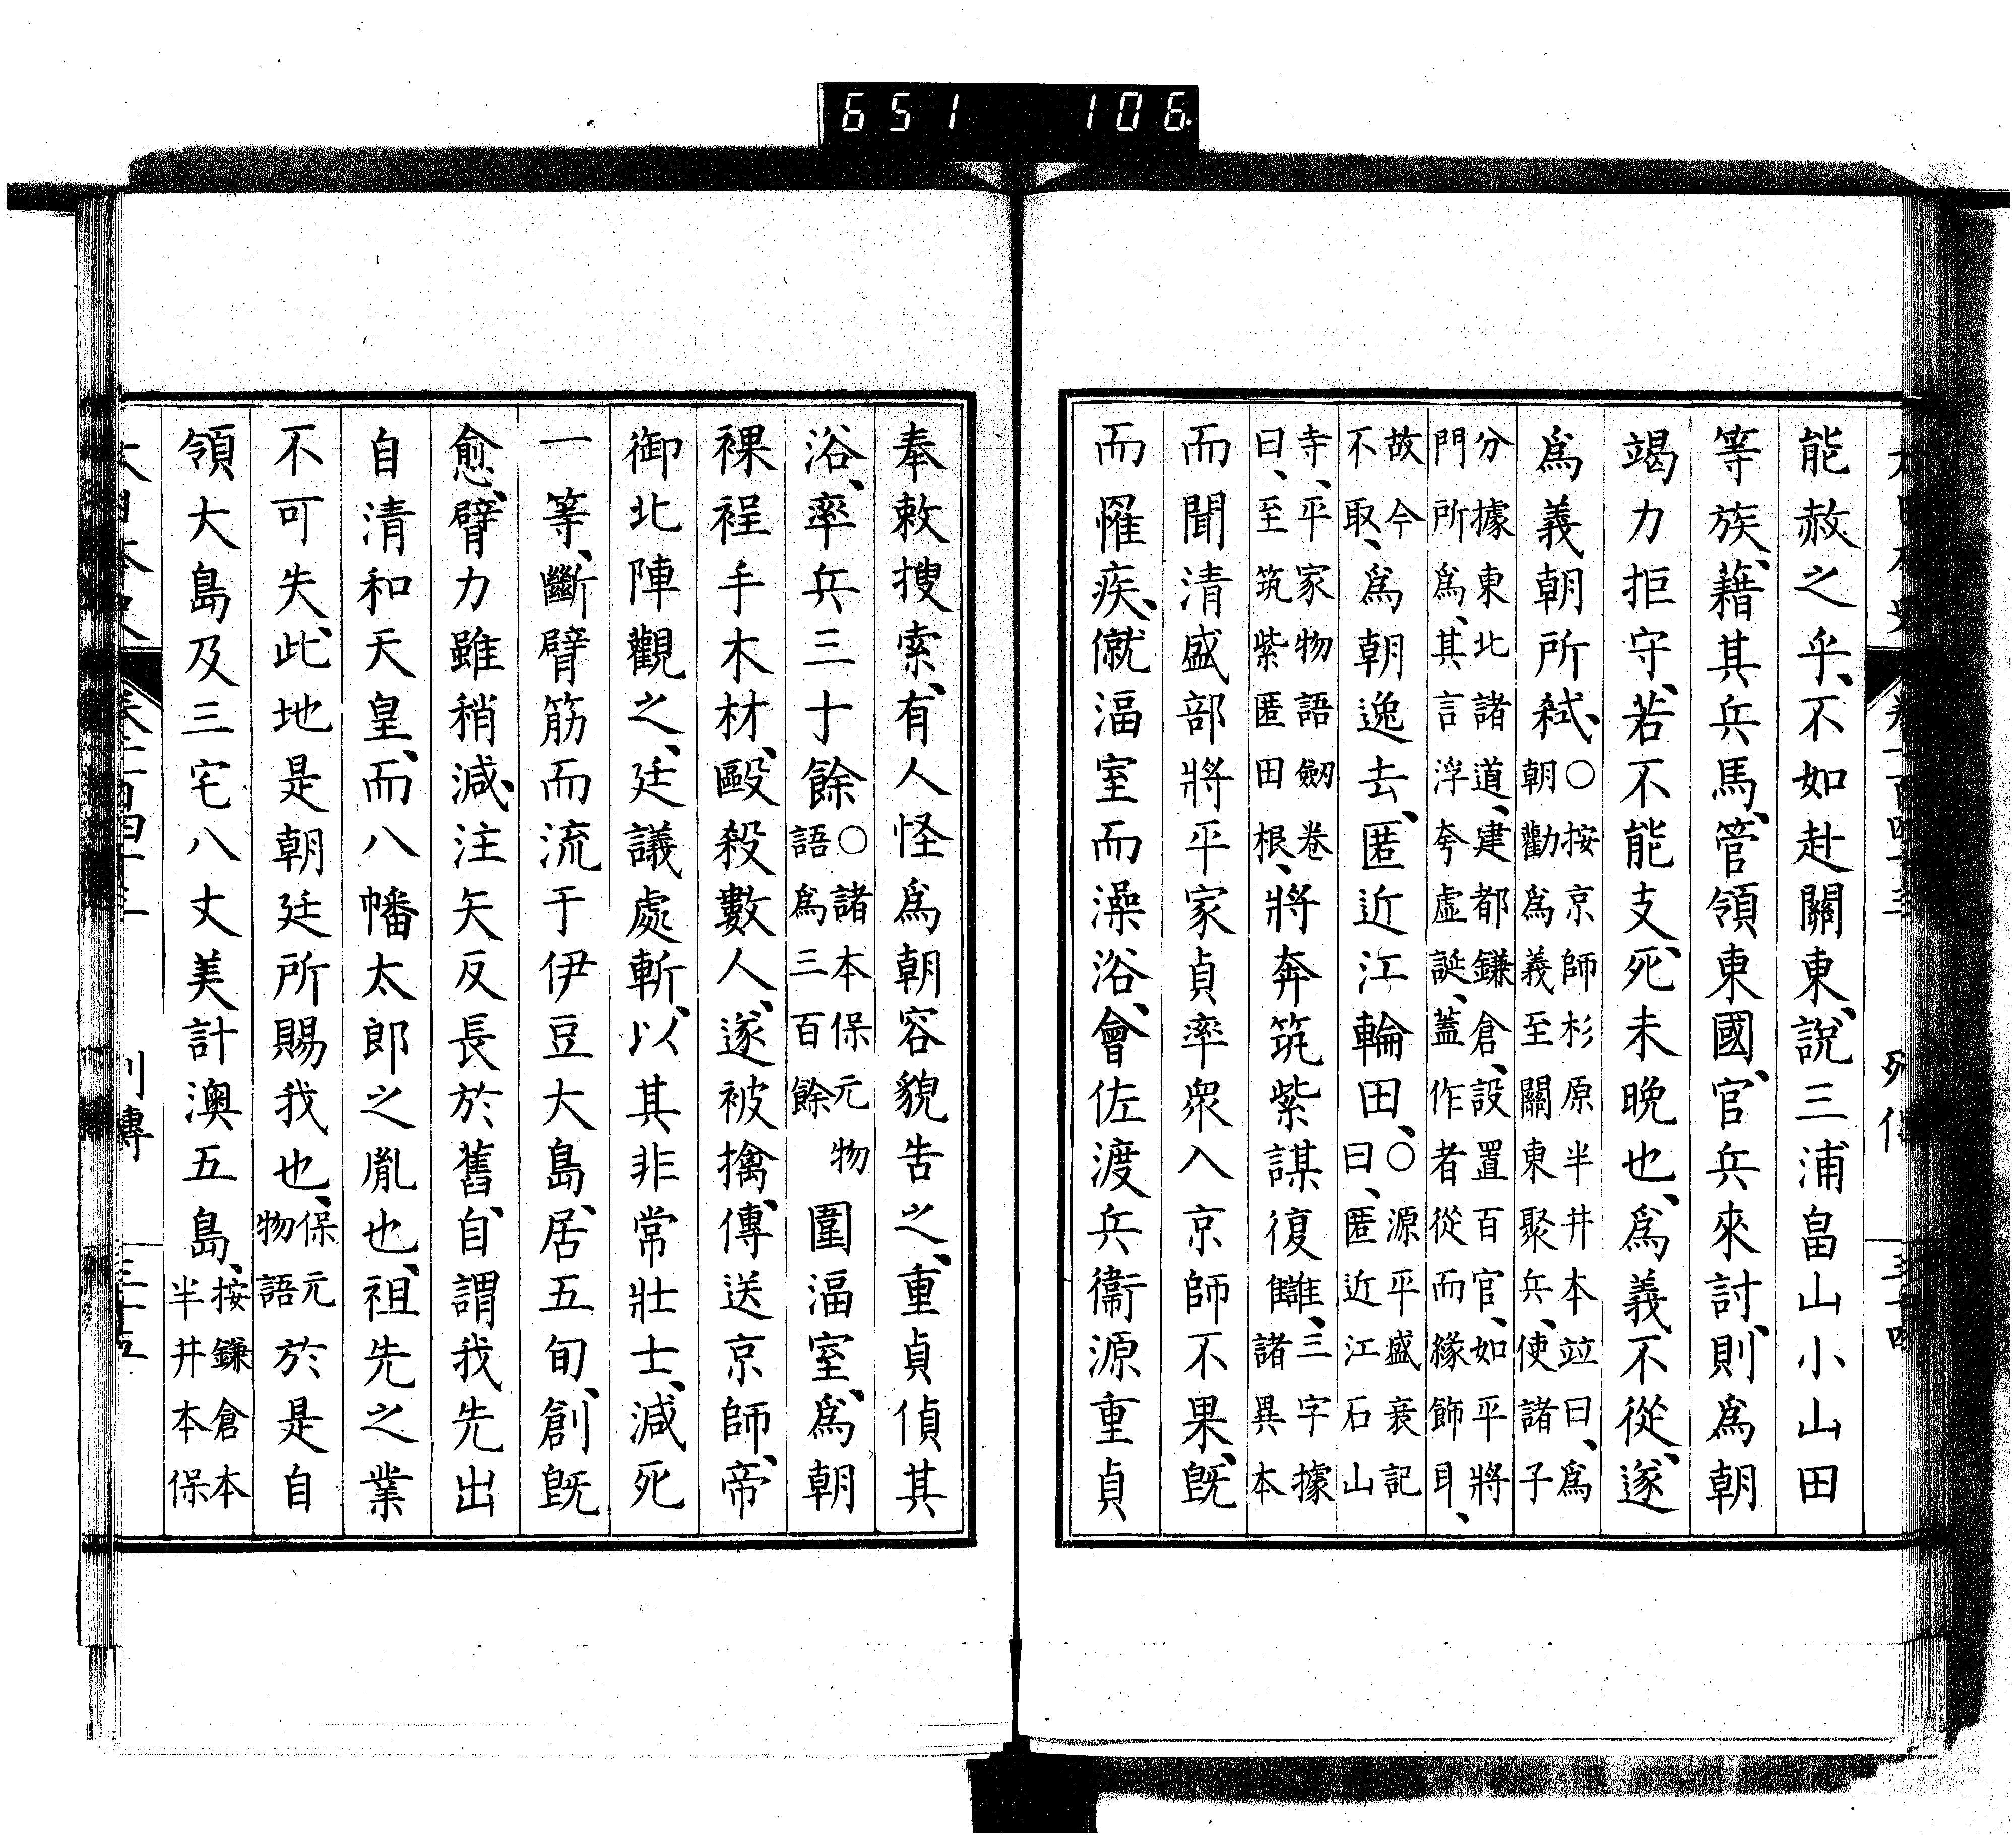 651 106
能赦之乎、不如赴關東、說三浦畠山小山田
等族、藉其兵馬、管領東國、官兵來討、則爲朝
竭力拒守、若不能支、死未晚也、爲義不從、遂
爲義朝所弑、○按京師杉原半井本竝曰、爲
朝勸爲義至關東聚兵、使諸子
分據東北諸道、建都鎌倉、設置百官、如平將
門所爲、其言浮夸虛誕、蓋作者從而緣飾耳、
故今
不取、爲朝逸去、匿近江輪田、○源平盛衰記
曰、匿近江石山
寺、平家物語劔卷
曰、至筑紫匿田根、將奔筑紫謀復讎、三字據
諸異本
而聞淸盛部將平家貞率衆入京師不果、旣
而罹疾、僦湢室而澡浴、會佐渡兵衞源重貞
奉敕搜索、有人怪爲朝容貌吿之、重貞偵其
浴、率兵三十餘○諸本保元物
語爲三百餘圍湢室、爲朝
裸裎手木材、毆殺數人、遂被擒、傳送京師、帝
御北陣觀之、廷議處斬、以其非常壯士、減死
一等、斷臂筋而流于伊豆大島、居五旬、創旣
愈、臂力雖稍減、注矢反長於舊、自謂我先出
自淸和天皇、而八幡太郎之胤也、祖先之業
不可失、此地是朝廷所賜我也、保元
物語於是自
領大島及三宅八丈美計澳五島、按鎌倉本
半井本保
大日本史 卷一百四十三 列傳 三十五